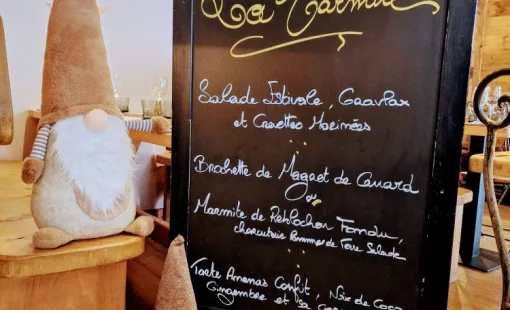 La Marmite
Salade Estivale, Gravlax
et Crevettes Marinées
Brochette de Magret de Canard
ou
Marmite de Reblochon Fondu,
charcuterie Pomme de Terre Salade
Tarte Ananas Confit, Noix de Coco
Gingembre et sa